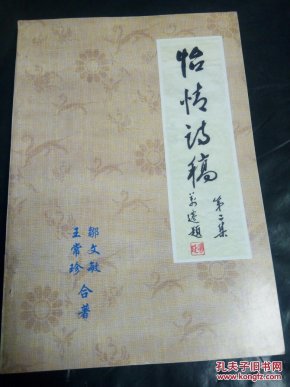 怡情诗稿
第二集
邹文敏
王常珍
合著
孔夫子旧书网